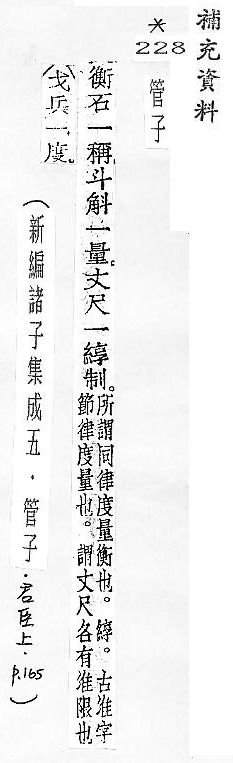 補充資料
*
228
管子
衡石一稱。斗斛一量。丈尺一綧制。所謂同律度量衡也。綧。古準字
節律度量也。謂丈尺各有準限也
(戈兵一度。
(新編諸子集成五.管子.君臣上.p.165)